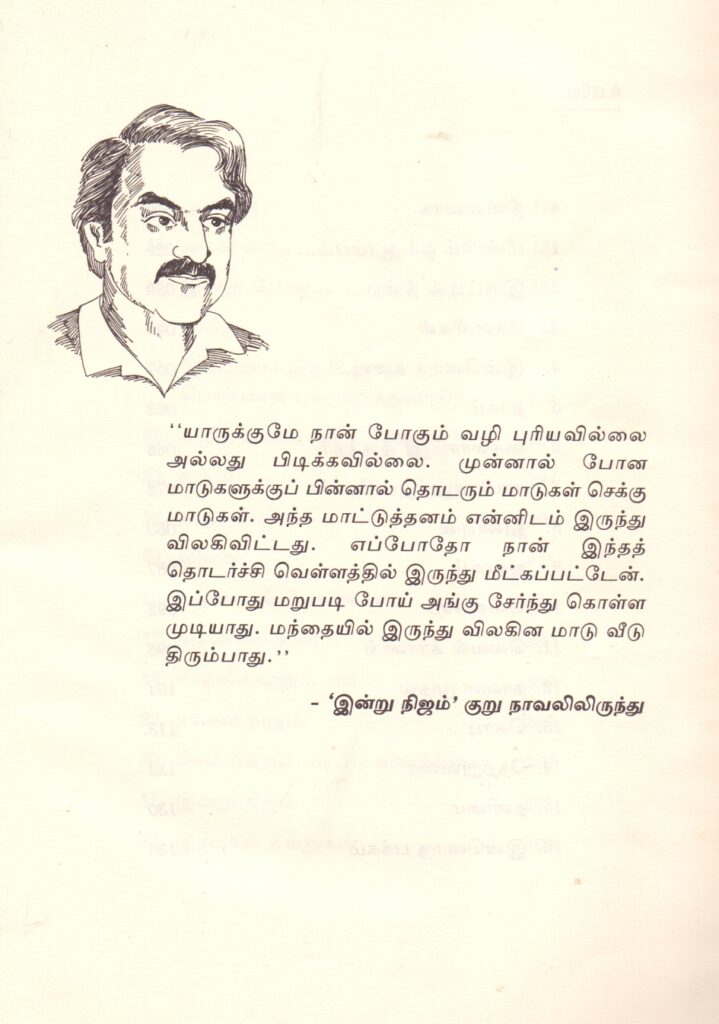 ‘‘யாருக்குமே நான் போகும் வழி புரியவில்லை
அல்லது பிடிக்கவில்லை. முன்னால் போன
மாடுகளுக்குப் பின்னால் தொடரும் மாடுகள் செக்கு
மாடுகள். அந்த மாட்டுத்தனம் என்னிடம் இருந்து
விலகிவிட்டது. எப்போதோ நான் இந்தத்
தொடர்ச்சி வெள்ளத்தில் இருந்து மீட்கப்பட்டேன்.
இப்போது மறுபடி போய் அங்கு சேர்ந்து கொள்ள
முடியாது. மந்தையில் இருந்து விலகின மாடு வீடு
திரும்பாது.’’
– ‘இன்று நிஜம்’ குறு நாவலிலிருந்து